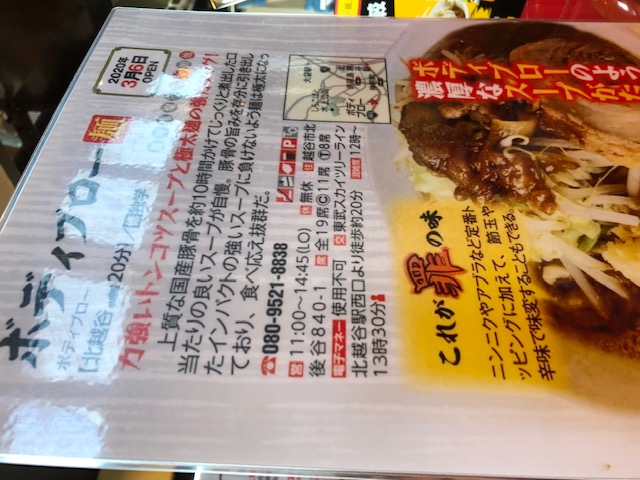 2020年
3月6日
OPEN
ボディブロー
ボディブロー
【北越谷
20分】
力強いトンコツスープと極太麺の強
上質な国産豚骨を約10時間かけてじっくりと煮出した口
当たりの良いスープが自慢。豚骨の旨みを存分に引き出し
たインパクトの強いスープに負けないよう麺は極太になっ
ており、食べ応え抜群だ。
080-9521-8838
営 11:00〜14:45(LO) 休 無休 住 越谷市北
後谷840-1 席 全19席 C11席 T8席
電子マネー 使用不可 交 東武スカイツリーライン
北越谷駅西口より徒歩約20分 12時〜
13時30分
ボディブローのよう
濃厚なスープがた
これが罪の味
ニンニクやアブラなど定番ト
ッピングに加えて、節玉や
辛味で味変することもできる。